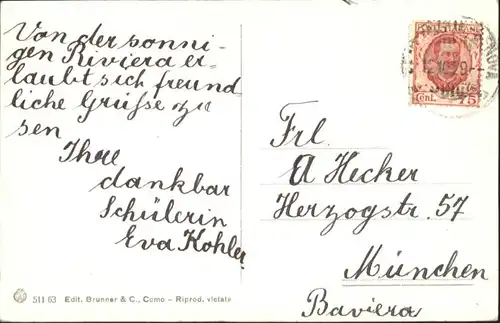 Von der sonni-
gen Riviera er-
laubt sich freund
liche Grüße zu
sen
Ihre
dankbar
Schülerin
Eva Kohler.
Frl.
A Hecker
Herzogstr. 57
München
Baviera
Cent. 75
511 63 Edit. Brunner & C., Como – Riprod. vietata